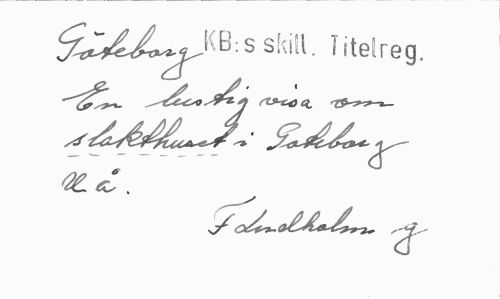 Göteborg KB:s skill. Titelreg.
En lustig visa om
slakthuset i Göteborg
U å.
F Lindholm g